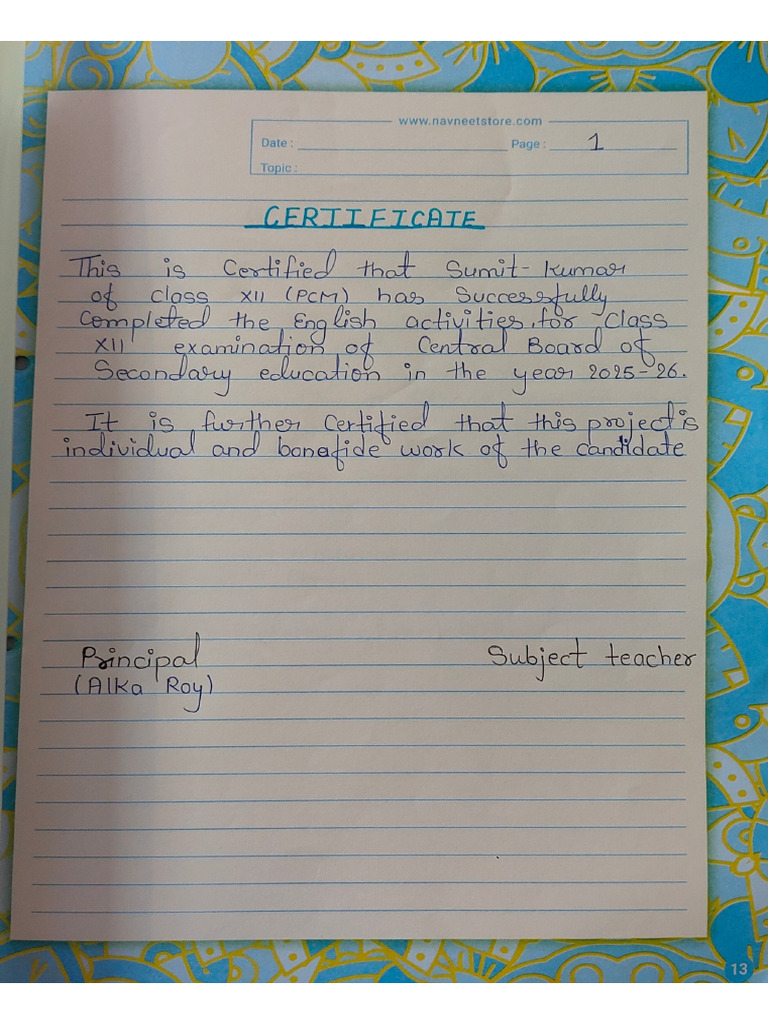 www.navneetstore.com
Date : Page : 1
Topic :
CERTIFICATE
This is Certified that Sumit-Kumar
of class XII (PCM) has Successfully
Completed the English activities, for Class
XII examination of Central Board of
Secondary education in the year 2025-26.
It is further Certified that this project is
individual and bonafide work of the candidate
Principal Subject teacher
(Alka Roy)
13